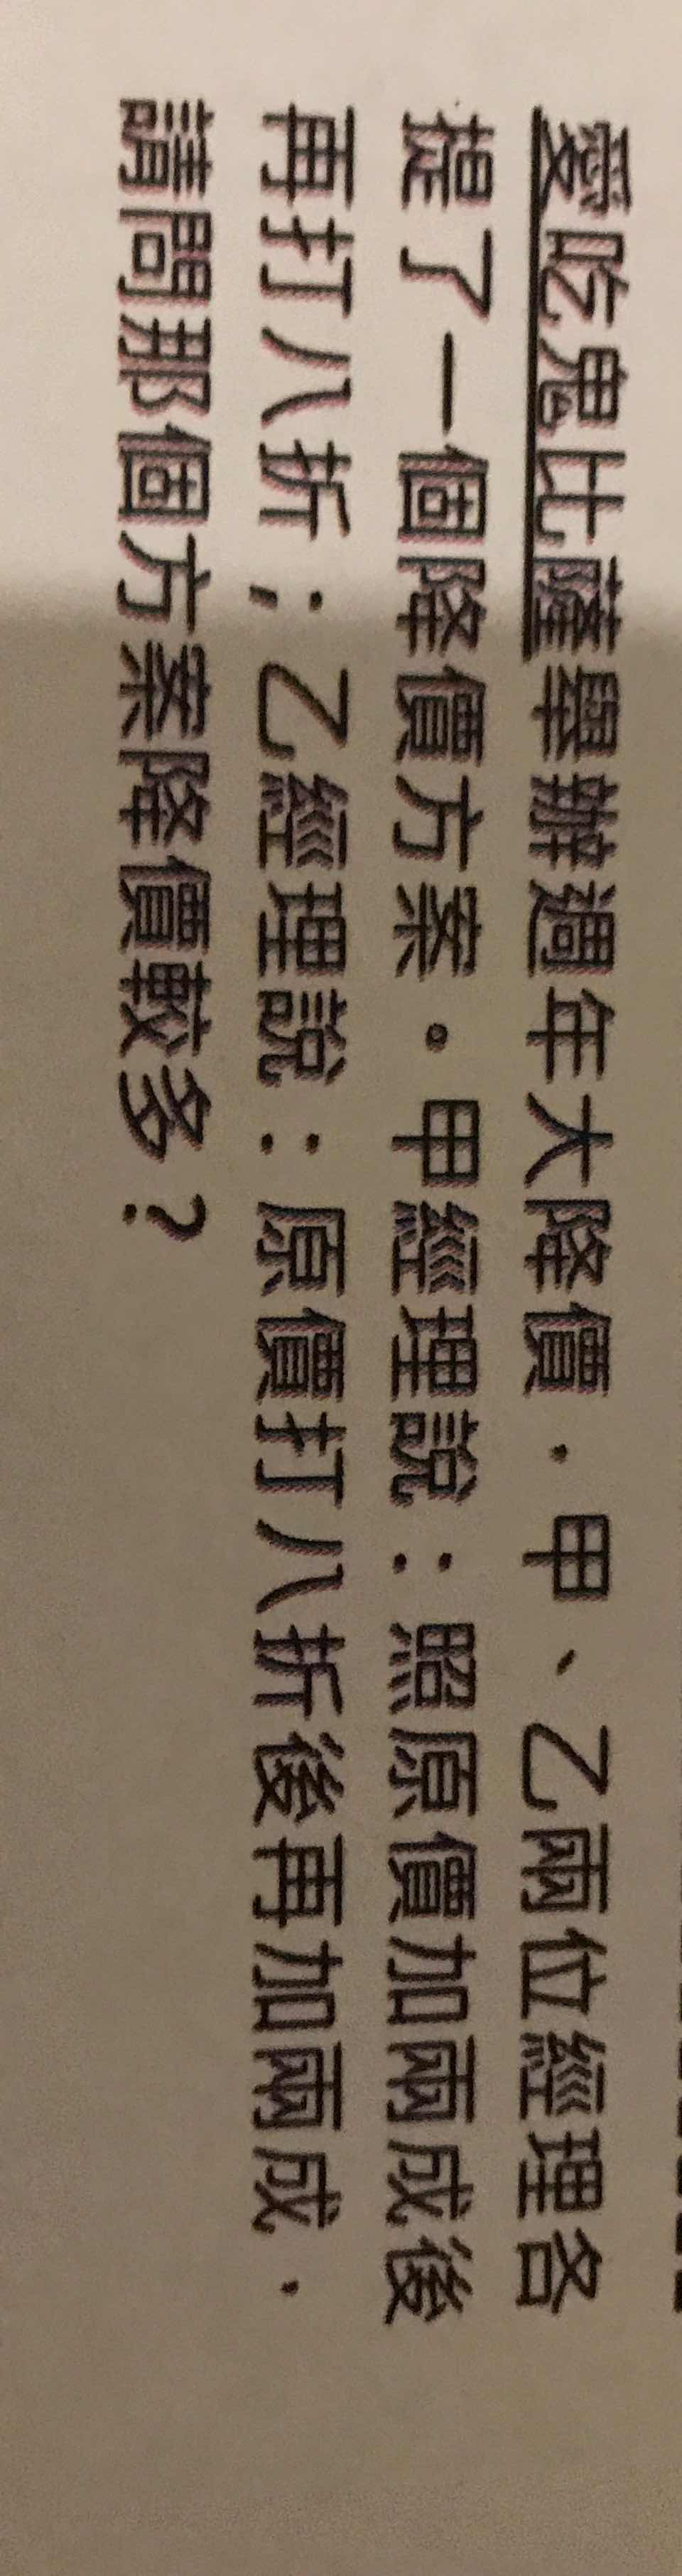 愛吃鬼比薩舉辦週年大降價，甲、乙兩位經理各
提了一個降價方案。甲經理說：照原價加兩成後
再打八折；乙經理說：原價打八折後再加兩成，
請問那個方案降價較多？